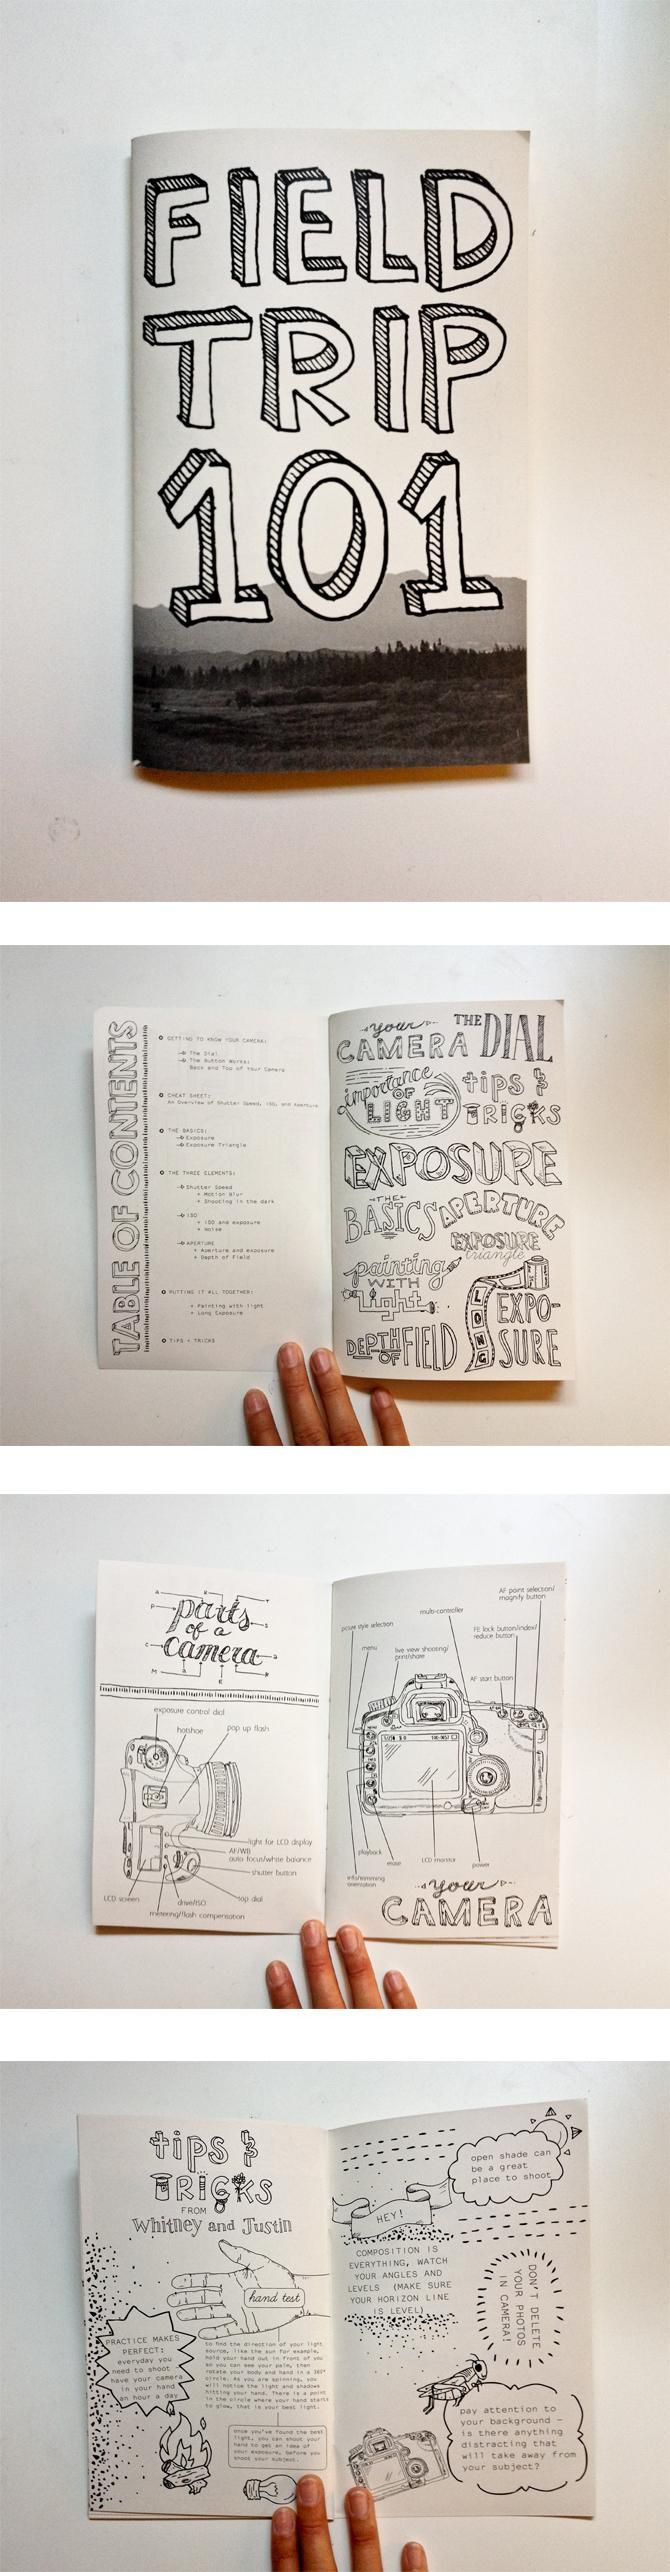 FIELD
TRIP
101
TABLE OF CONTENTS
GETTING TO KNOW YOUR CAMERA:
The Dial
The Button Works:
Back and Top of Your Camera
CHEAT SHEET:
An Overview of Shutter Speed, ISO, and Aperture
THE BASICS:
Exposure
Exposure Triangle
THE THREE ELEMENTS:
Shutter Speed
+ Motion Blur
+ Shooting in the dark
ISO
+ ISO and exposure
+ Noise
APERTURE
+ Aperture and exposure
+ Depth of Field
PUTTING IT ALL TOGETHER:
+ Painting with light
+ Long Exposure
TIPS + TRICKS
your
CAMERA
THE DIAL
importance
OF
LIGHT
tips &
TRICKS
EXPOSURE
THE
BASICS
APERTURE
EXPOSURE
triangle
painting
WITH
light
LONG
EXPO-
SURE
DEPTH
OF
FIELD
parts
of a
camera
exposure control dial
hotshoe
pop up flash
light for LCD display
AF/WB
auto focus/white balance
shutter button
LCD screen
drive/ISO
top dial
metering/flash compensation
AF point selection/
magnify button
multi-controller
picture style selection
FE lock button/index/
reduce button
menu
live view shooting/
print/share
AF start button
playback
erase
LCD monitor
power
info/trimming
orientation
your
CAMERA
tips &
TRICKS
FROM
Whitney and Justin
hand test
PRACTICE MAKES
PERFECT:
everyday you
need to shoot -
have your camera
in your hand
an hour a day
to find the direction of your light
source, like the sun for example,
hold your hand out in front of you
so you can see your palm, then
rotate your body and hand in a 360°
circle. As you are spinning, you
will notice the light and shadows
hitting your hand. There is a point
in the circle where your hand starts
to glow, that is your best light.
once you've found the best
light, you can shoot your
hand to get an idea of
your exposure, before you
shoot your subject.
open shade can
be a great
place to shoot
HEY!
COMPOSITION IS
EVERYTHING, WATCH
YOUR ANGLES AND
LEVELS (MAKE SURE
YOUR HORIZON LINE
IS LEVEL)
DON'T DELETE
YOUR PHOTOS
IN CAMERA!
pay attention to
your background -
is there anything
distracting that
will take away from
your subject?